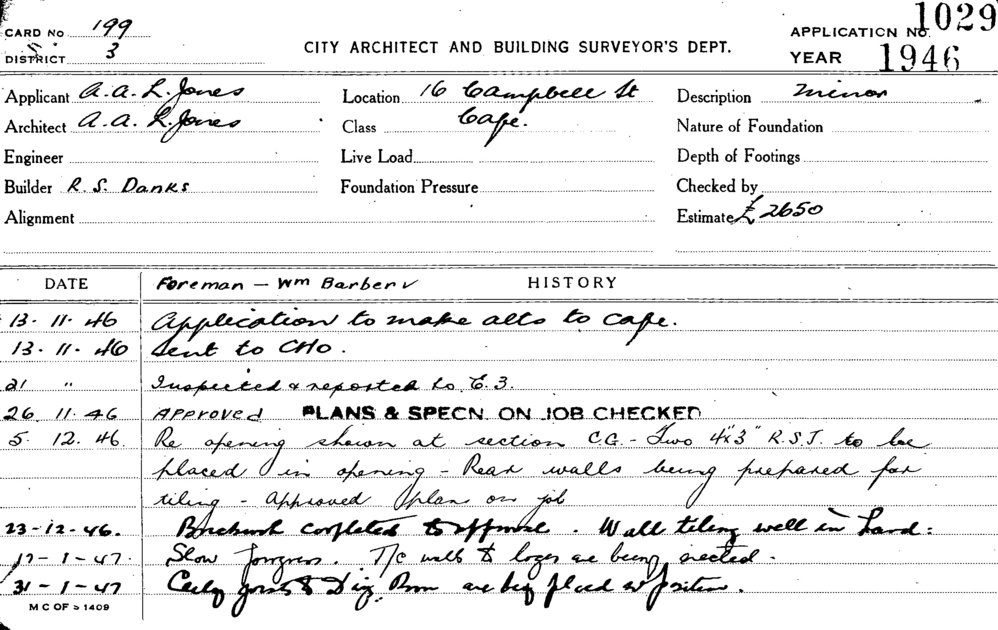 CARD No 199
APPLICATION No. 1029
S
DISTRICT 3
CITY ARCHITECT AND BUILDING SURVEYOR'S DEPT.
YEAR 1946
Applicant A. A. L. Jones
Location 16 Campbell St
Description minor
Architect A. A. L. Jones
Class Cafe.
Nature of Foundation
Engineer
Live Load
Depth of Footings
Builder R. S. Danks
Foundation Pressure
Checked by
Alignment
Estimate £2650
DATE Foreman — Wm Barber HISTORY
13 · 11 · 46 Application to make alts to cafe.
13 · 11 · 46 Sent to CHO.
21 " Inspected & reported to E.3.
26. 11. 46 APPROVED PLANS & SPECN. ON JOB CHECKED
5. 12. 46. Re opening shown at section C.G. - Two 4"x3" R.S.J. to be
placed in opening - Rear walls being prepared for
tiling - Approved plan on job
23-12-46. Brickwork completed to approval. Wall tiling well in hand:
17-1-47. Slow progress. T/c walls to are being erected.
31-1-47 Ceiling joists to Dig Rm are being placed in position.
M C OF S 1409